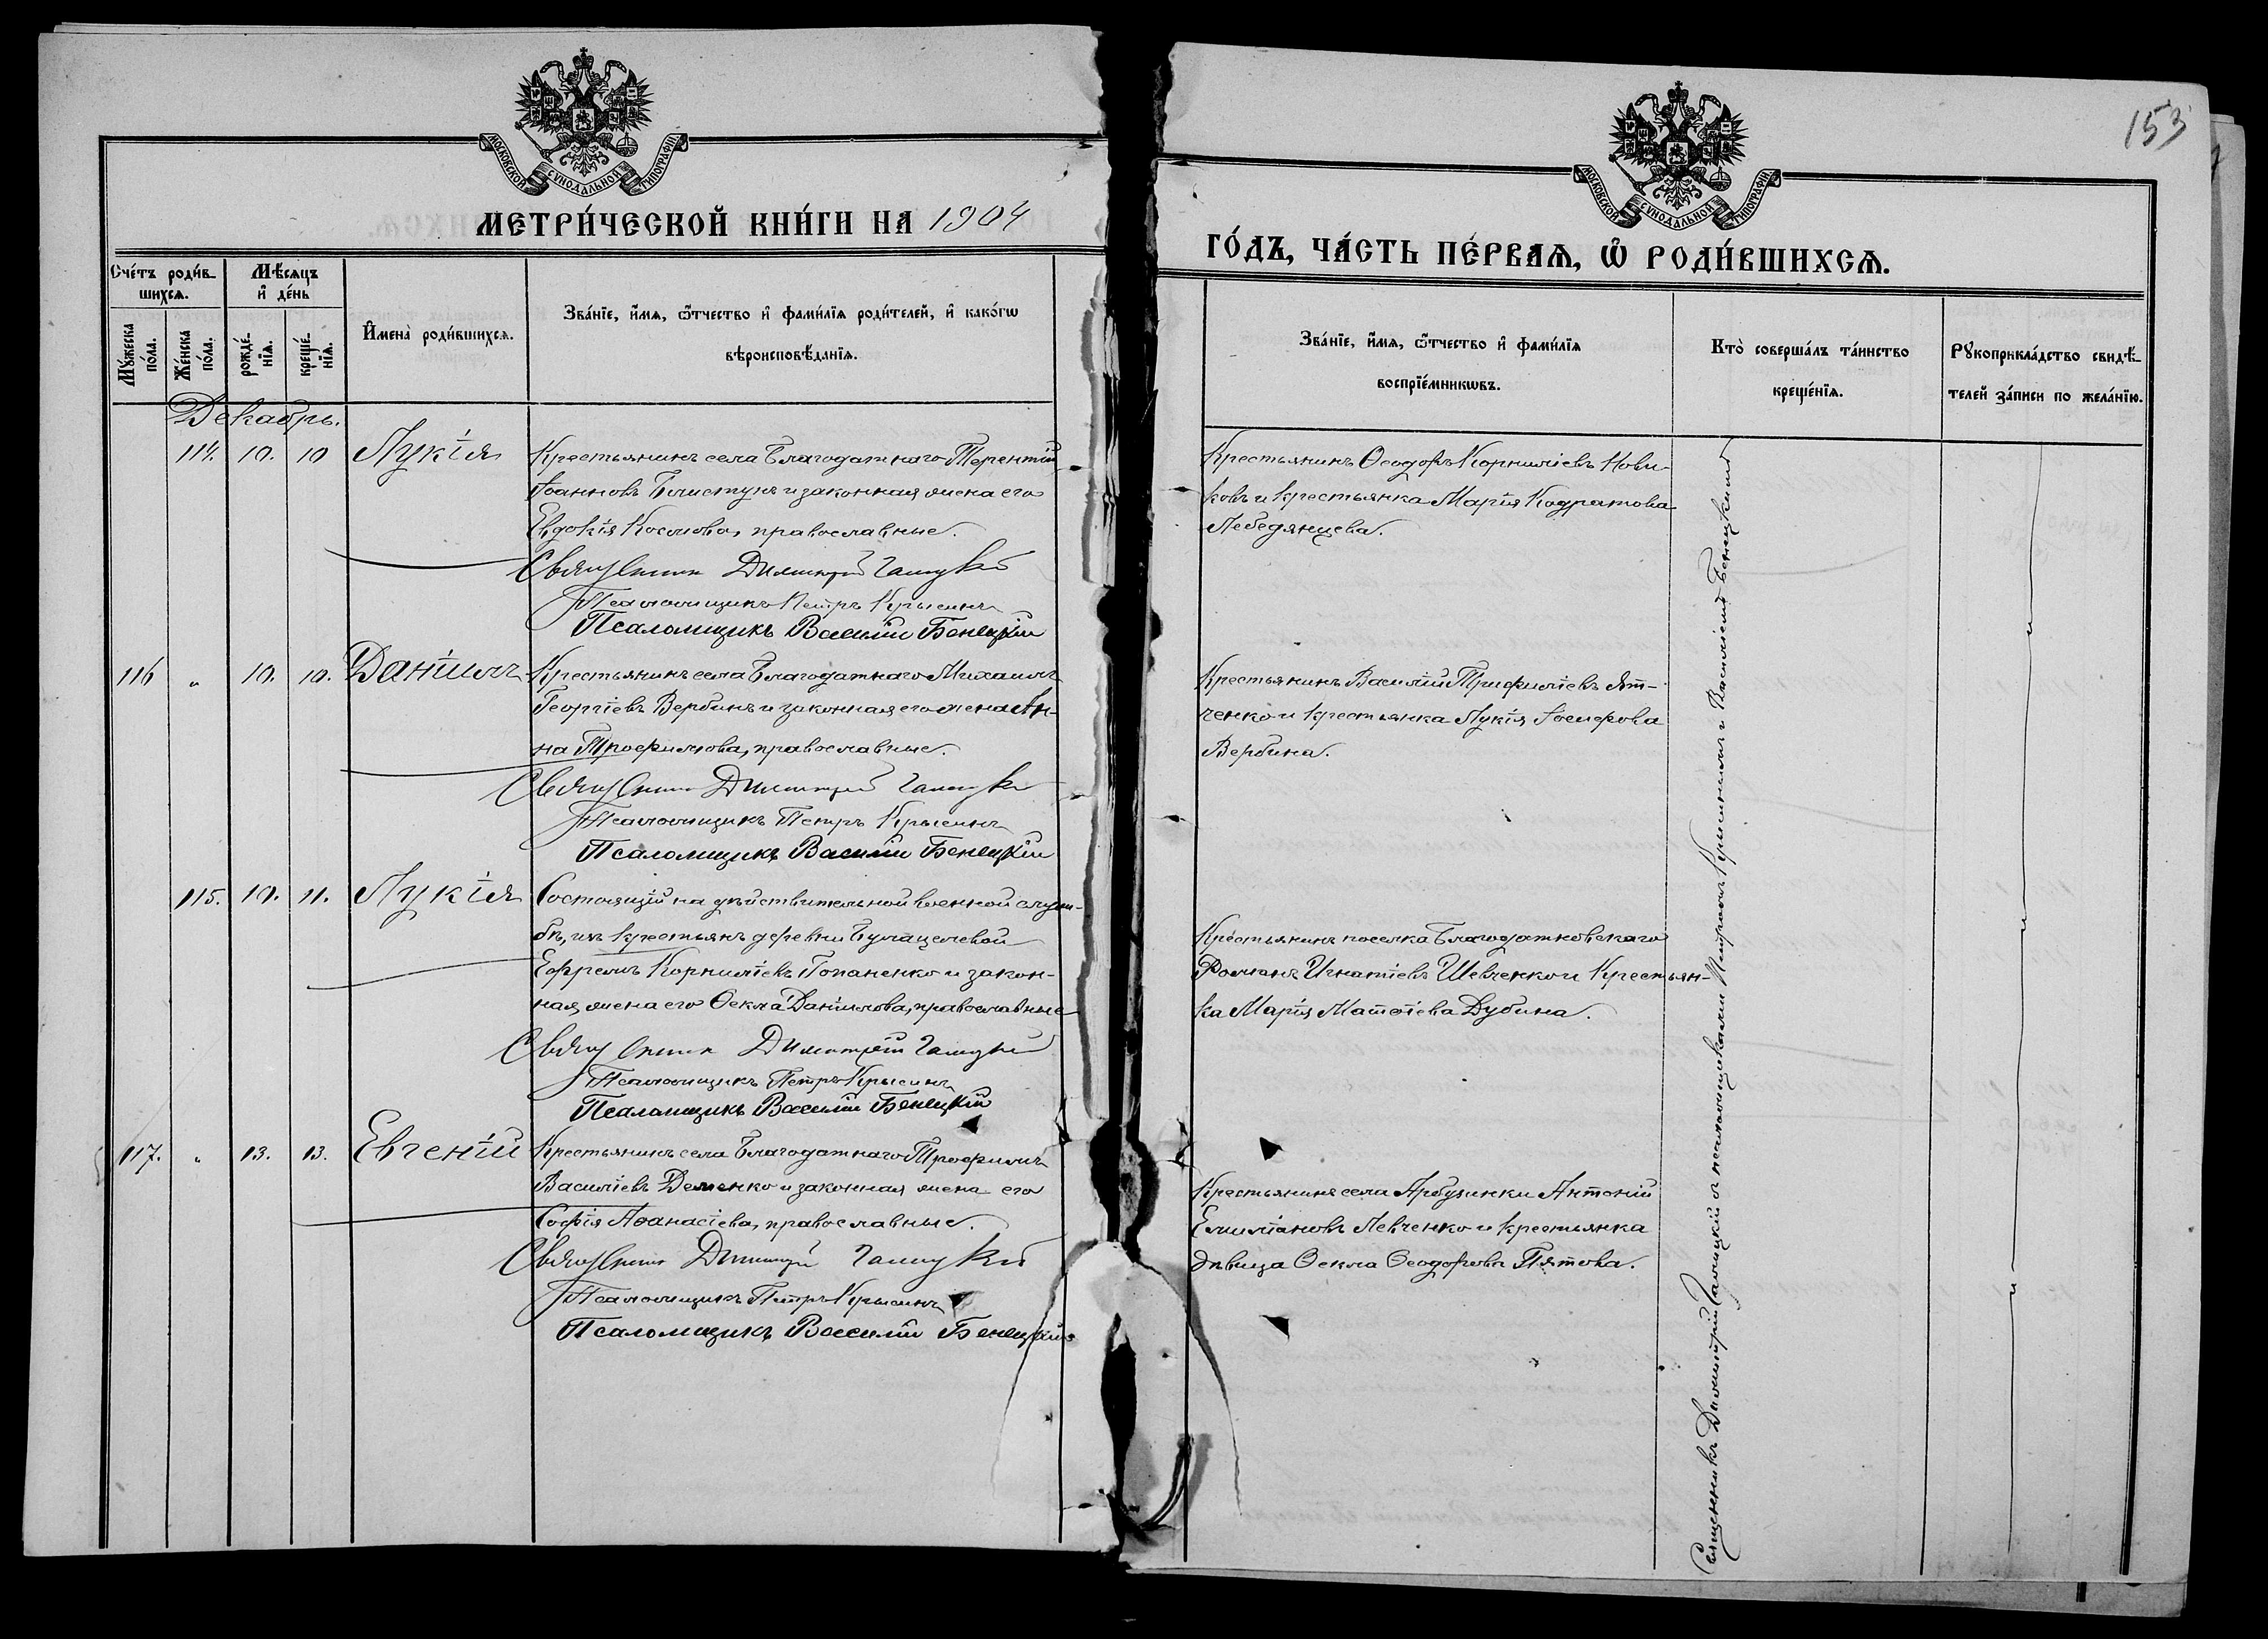 153
МОСКОВСКОЙ СѴНОДАЛЬНОЙ ТИПОГРАФІИ
МЕТРИ́ЧЕСКОЙ КНИ́ГИ НА 1904
Сче́тъ роди́в-
шихсѧ.
Мѣ́сяцъ
и҆ де́нь
Мꙋ́жеска
по́ла.
Же́нска
по́ла.
рожде́-
нїѧ.
креще́-
нїѧ.
И҆мена̀ роди́вшихсѧ.
Зва́нїе, и҆́мѧ, ѻ҆́тчество и҆ фами́лїѧ роди́телей, и҆ како́гѡ
вѣроисповѣ́данїѧ.
Декабрь.
114. 10. 10 Лукія
Крестьянинъ села Благодатнаго Терентій
Іоанновъ Блистунъ и законная жена его
Евдокія Космова, православные.
Священникъ Димитрій Галицкій
Псаломщикъ Петръ Крысинъ
Псаломщикъ Василій Бенецкій
116 „ 10. 10. Даніилъ
Крестьянинъ села Благодатнаго Михаилъ
Георгіевъ Вербинъ и законная его жена Ан-
на Трофимова, православные.
Священникъ Димитрій Галицкій
Псаломщикъ Петръ Крысинъ
Псаломщикъ Василій Бенецкій
115. 10. 11. Лукія
Состоящій на дѣйствительной военной служ-
бѣ, изъ крестьянъ деревни
Ефремъ Корниліевъ Попаненко и закон-
ная жена его Ѳекла Даніилова, православные
Священникъ Димитрій Галицкій
Псаломщикъ Петръ Крысинъ
Псаломщикъ Василій Бенецкій
117. „ 13. 13. Евгеній
Крестьянинъ села Благодатнаго Трофимъ
Василіевъ Деменко и законная жена его
Софія Аѳанасіева, православные.
Священникъ Димитрій Галицкій
Псаломщикъ Петръ Крысинъ
Псаломщикъ Василій Бенецкій
МОСКОВСКОЙ СѴНОДАЛЬНОЙ ТИПОГРАФІИ
ГО́ДЪ, ЧА́СТЬ ПЕ́РВАѦ, Ѡ҆ РОДИ́ВШИХСѦ.
Зва́нїе, и҆́мѧ, ѻ҆́тчество и҆ фами́лїѧ
воспрїе́мникѡвъ.
Кто̀ соверша́лъ та́инство
креще́нїѧ.
Рꙋкоприкла́дство свидѣ́-
телей за́писи по жела́нїю.
Крестьянинъ Ѳеодоръ Корниліевъ Нови-
ковъ и крестьянка Марія Кодратова
Лебедянцева.
Крестьянинъ Василій Трифиліевъ Ят-
ченко и крестьянка Лукія Іосифова
Вербина.
Крестьянинъ поселка Благодатновскаго
Романъ Игнатіевъ Шевченко и Крестьян-
ка Марія Матѳіева Дубина.
Крестьянинъ села Арбузинки Антоній
Емиліановъ Левченко и крестьянка
дѣвица Ѳекла Ѳеодорова Пятова.
Священникъ Димитрій Галицкій съ псаломщиками Петромъ Крысинымъ и Василіемъ Бенецкимъ